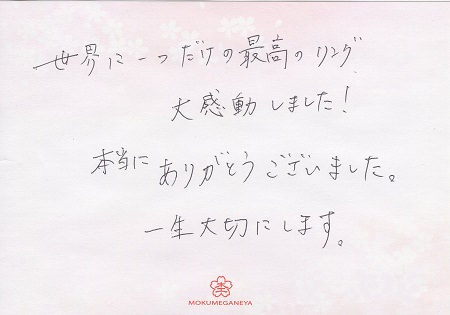 世界に一つだけの最高のリング
大感動しました!
本当にありがとうございました。
一生大切にします。
MOKUMEGANEYA